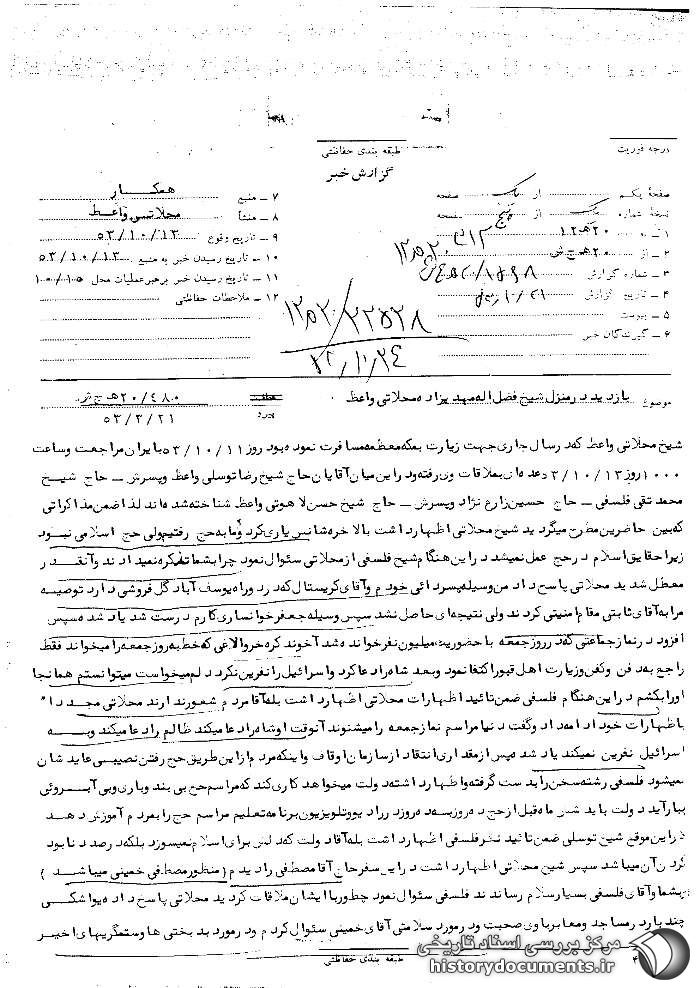 درجه فوریت
طبقه بندی حفاظتی
گزارش خبر
صفحهٔ یکم از یک صفحه
نسخهٔ شماره یک از پنج صفحه
۱ـ به ۲۰ هـ ۱۲
۲ـ از ۲۰ هـ ج ش
۳ـ شماره گزارش
۴ـ تاریخ گزارش
۵ـ پیوست
۶ـ گیرندگان خبر
۷ـ منبع همکار
۸ـ منشأ محلاتی واعظ
۹ـ تاریخ وقوع ۵۳/۱۰/۱۳
۱۰ـ تاریخ رسیدن خبر به منبع ۵۳/۱۰/۱۳
۱۱ـ تاریخ رسیدن خبر برهبر عملیات محل
۱۲ـ ملاحظات حفاظتی
۲۲/۱۰/۲۴
موضوع بازدید در منزل شیخ فضل اله مهدیزاده محلاتی واعظ
۲۰/۴۸۰ هـ ج ش
پیرو ۵۳/۳/۲۱
شیخ محلاتی واعظ که در سال جاری جهت زیارت بمکه معظمه مسافرت نموده بود روز ۵۳/۱۰/۱۱ بایران مراجعت و ساعت
۱۰۰۰ روز ۵۳/۱۰/۱۳ عده ای بملاقات وی رفته و در این میان آقایان حاج شیخ رضا توسلی واعظ و پسرش ـ حاج شیخ
محمد تقی فلسفی ـ حاج حسین زارع نژاد و پسرش ـ حاج شیخ حسن لاهوتی واعظ شناخته شده اند لذا ضمن مذاکراتی
که بین حاضرین مطرح میگردید شیخ محلاتی اظهار داشت بالاخره شانس یاری کرد و ما به حج رفتیم ولی حج اسلامی نبود
زیرا حقایق اسلام در حج عمل نمیشد در این هنگام شیخ فلسفی از محلاتی سئوال نمود چرا بشما تذکره نمیدادند و آنقدر
معطل شدید محلاتی پاسخ داد من وسیله پسر دائی خودم و آقای کریستال که در دو راه یوسف آباد گل فروشی دارد توصیه
مرا به آقای ثابتی مقام امنیتی کردند ولی نتیجه ای حاصل نشد سپس وسیله جعفر خوانساری کارم درست شد یاد شده سپس
افزود در نماز جماعتی که در روز جمعه با حضور بیست میلیون نفر خوانده شد آخوند کره خر و الاغی که خطبه روز جمعه را میخواند فقط
راجع به دفن و کفن و زیارت اهل قبور اکتفا نمود و بعد شاه را دعا کرد و اسرائیل را نفرین نکرد دلم میخواست میتوانستم همانجا
او را بکشم در این هنگام فلسفی ضمن تائید اظهارات محلاتی اظهار داشت بله آقا مردم شعور ندارند محلاتی مجددا"
باظهارات خود ادامه داد و گفت دنیا مراسم نماز جمعه را میشنوند آنوقت او شاه را دعا میکند ظالم را دعا میکند و به
اسرائیل نفرین نمیکند یاد شده پس از مقداری انتقاد از سازمان اوقاف و اینکه مردم از این طریق حج رفتن نصیبی عایدشان
نمیشود فلسفی رشته سخن را بدست گرفته و اظهار داشته دولت میخواهد کاری کند که مراسم حج بی بند و باری و بی آبروئی
ببار آید دولت باید شش ماه قبل از حج در روز سه دو روز در رادیو و تلویزیون برنامه تعلیم مراسم حج را بمردم آموزش دهد
در این موقع شیخ توسلی ضمن تائید نظر فلسفی اظهار داشت بله آقا دولت که دلش برای اسلام نمیسوزد بلکه درصدد نابود
کردن آن میباشد سپس شیخ محلاتی اظهار داشت در این سفر حاج آقا مصطفی را دیدم (منظور مصطفی خمینی میباشد)
بشما و آقای فلسفی بسیار سلام رساندند فلسفی سئوال نمود چطور با ایشان ملاقات کردید محلاتی پاسخ داد یواشکی
چند بار در مساجد و معابر با وی صحبت و در مورد سلامتی آقای خمینی سئوال کردم و در مورد بدبختی ها و ستمگریهای اخیر
طبقه بندی حفاظتی
مرکز بررسی اسناد تاریخی
historydocuments.ir